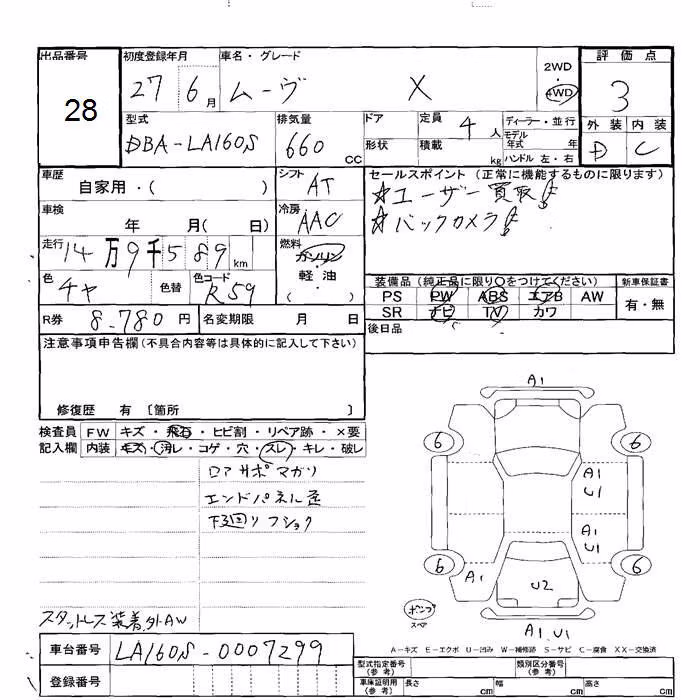 出品番号 初度登録年月 車名・グレード 評価点
28 27 6月 ムーヴ X 2WD・4WD 3
型式 排気量 ドア 定員 4人 ディーラー・並行 外装 内装
DBA-LA160S 660cc 形状 積載 kg モデル年式 年 D C
ハンドル 左・右
車歴 シフト セールスポイント (正常に機能するものに限ります)
自家用・( ) AT ☆ユーザー買取
車検 年 月( 日) 冷房 AAC ☆バックカメラ
走行 14万9千589km 燃料 ガソリン・軽油 ( )
色 チャ 色替 色コード R59 装備品 (純正品に限り○をつけてください) 新車保証書
PS PW ABS エアB AW 有・無
R券 8.780円 名変期限 月 日 SR ナビ TV カワ
後日品
注意事項申告欄 (不具合内容等は具体的に記入して下さい)
修復歴 有 [箇所 ]
検査員 FW キズ・飛石・ヒビ割・リペア跡・×要
記入欄 内装 キズ・汚レ・コゲ・穴・スレ・キレ・破レ
ロアサポマガリ
エンドパネル歪
下廻リフショク
スタットレス装着外AW
A1
6 6
A1
U1
A1
U1
6 6
A1
U2
ポンプ
スペア
A1,U1
A-キズ E-エクボ U-凹み W-補修跡 S-サビ C-腐食 XX-交換済
車台番号 LA160S-0007299
登録番号
型式指定番号(参考) 類別区分番号(参考)
車庫証明用(参考) 長さ cm 幅 cm 高さ cm